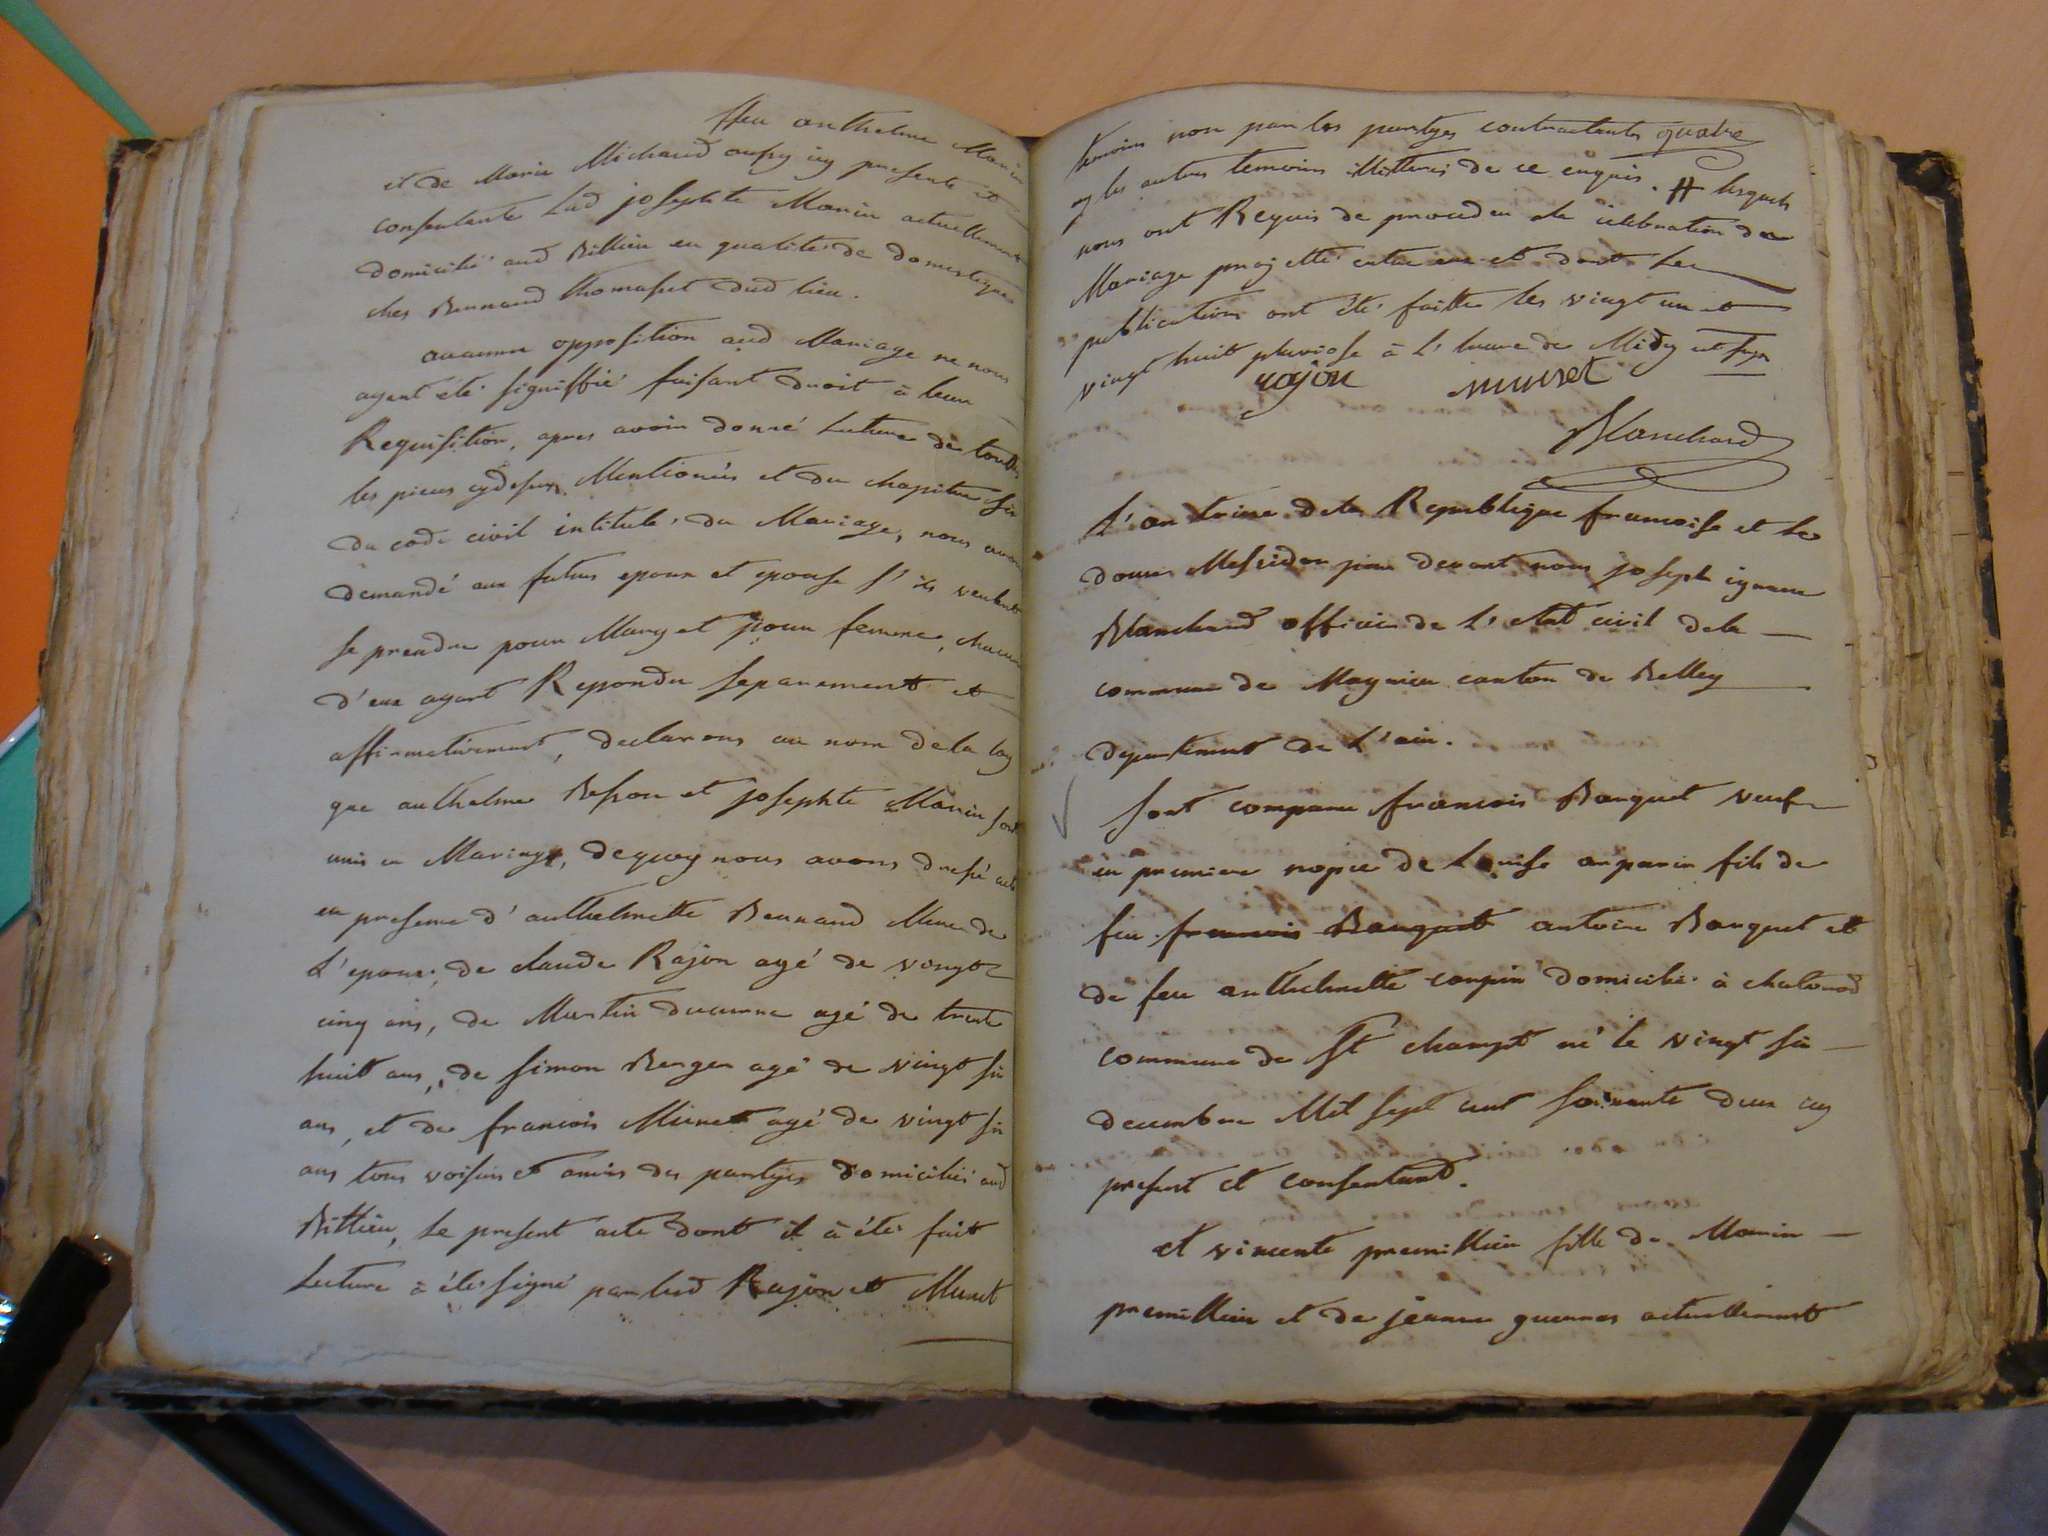 feu anthelme Marin
et de Marie Michaud aussy icy presente et
consentante Lad josephte Marin actuellement
domicilié aud Billieu en qualité de domestique
ches Bernard thomasset dud lieu.
aucunne opposition aud Mariage ne nous
ayant été signiffié faisant droit à leur
Requisition, apres avoir donné Lecture de touttes
les pieces cydessus Mentionnés et du chapitre six
du code civil intitulé du Mariage, nous avons
demandé aux futurs epoux et epouse s'ils veulent
se prendre pour Mary et pour femme, chacun
d'eux ayant Repondu separement et
affirmativement, declarons au nom de la loy
que anthelme Besson et josephte Marin sont
unis en Mariage, dequoy nous avons dressé acte
en presence d'anthelmette Bernard Mere de
L'epoux, de claude Rajon agé de vingt
cinq ans, de Martin ducurne agé de trente
huit ans, de simon Berger agé de vingt six
ans, et de francois Munet agé de vingt six
ans tous voisins et amis des partyes domiciliés aud
Billieu, Le present acte dont il à été fait
Lecture à été signé par lesd Rajon et Munet
temoins non par les partyes contractantes
ny les autres temoins illitterés de ce enquis. # lesquels
nous ont Requis de proceder a la celebration du
Mariage projetté entre eux et dont les
publications ont été faitte les vingt un et
vingt huit pluviose à L'heure de Midy
rajon munet
Blanchard
L'an treize de la Republique francoise et le
douze Messidor par devant nous joseph ignace
Blanchard officier de L'etat civil de la
commune de Magnieu canton de Belley
departement de L'ain.
sont comparu francois Banquet veuf
en premiere nopce de Louise fils de
feu francois Banquet antoine Banquet et
de feu anthelmette coupin domicilié à chatonod
commune de St champt né le vingt six
decembre Mil sept cent soixante deux icy
present et consentant.
et vincente premillieu fille de Marin
premillieu et de jeanne guerres actuellement